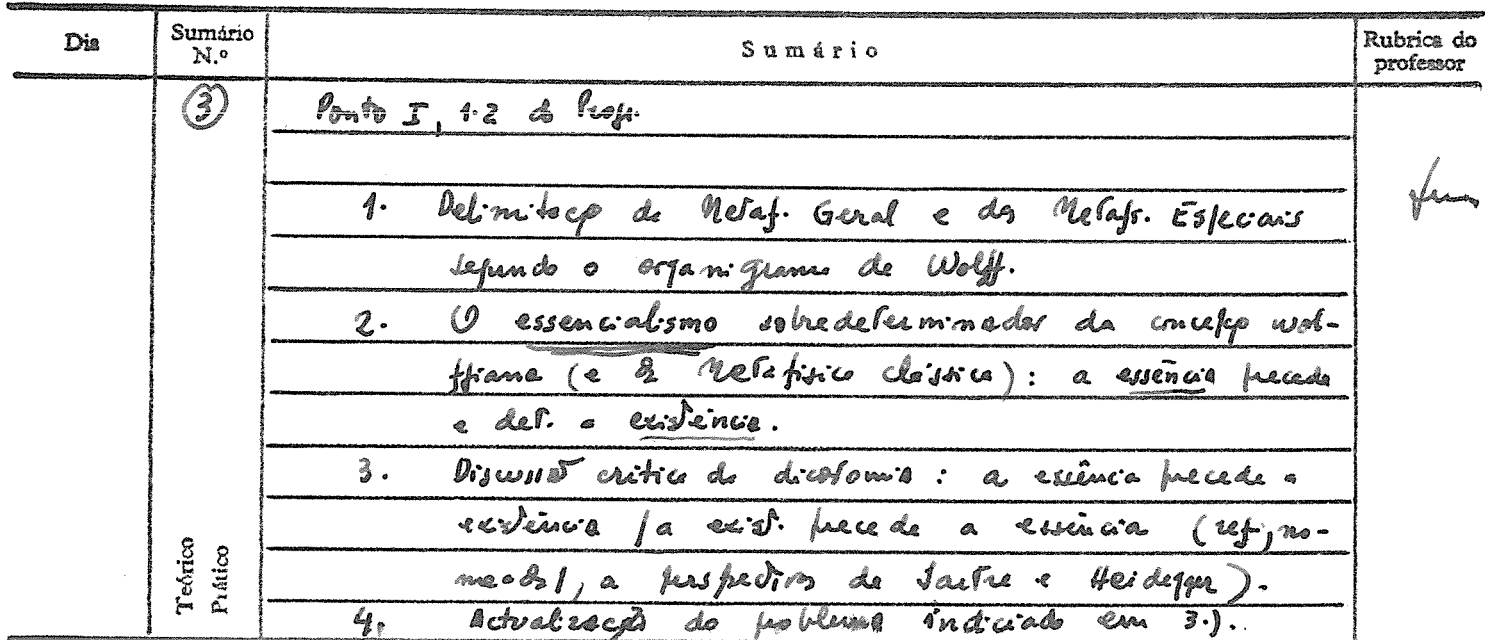 Dia
Sumário N.º
Sumário
Rubrica do professor
③
Ponto I, 1.2 do Progr.
1. Delimitação da Metaf. Geral e das Metafs. Especiais
segundo o organigrama de Wolff.
2. O essencialismo sobredeterminador da concepção wol-
ffiana (e da Metafísica clássica): a essência precede
e det. a existência.
3. Discussão crítica da dicotomia: a essência precede a
existência / a exist. precede a essência (ref,
a perspectivas de Sartre e Heidegger).
4. Actualização do problema indiciado em 3.).
Teórico
Prático